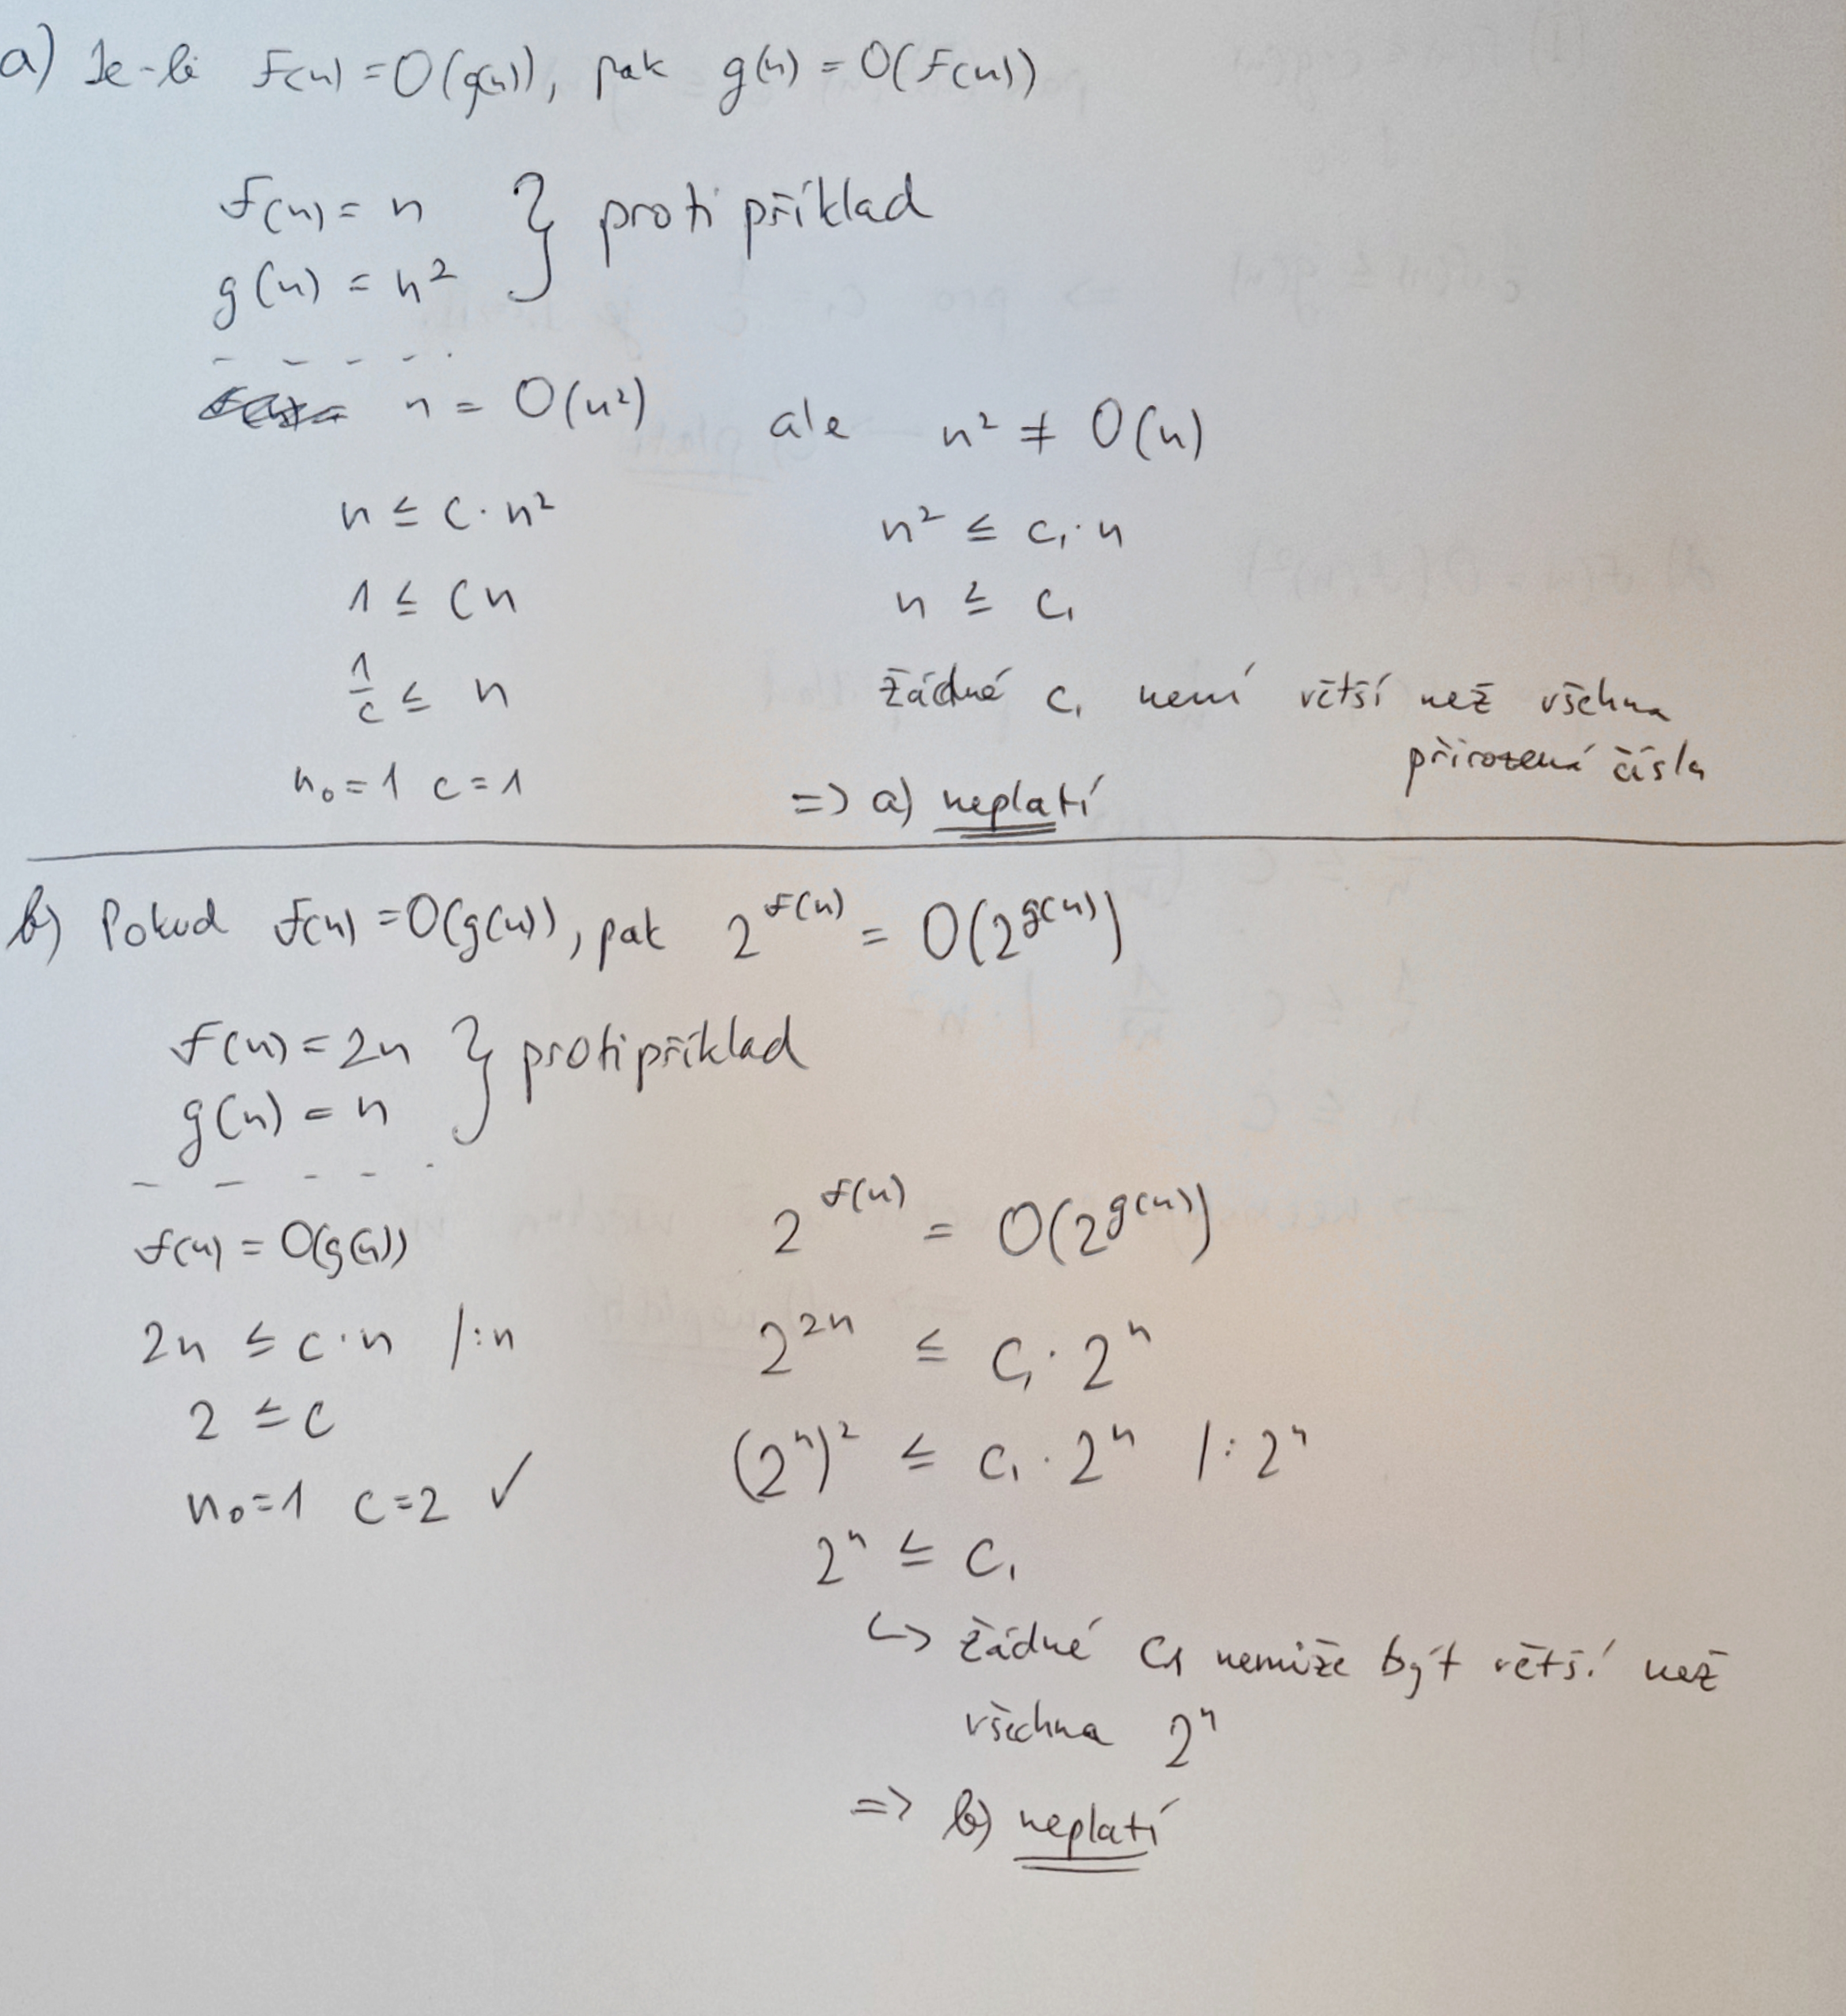 a) Je-li f(n) = O(g(n)), pak g(n) = O(f(n))
f(n) = n } protipříklad
g(n) = n²
n = O(n²) ale n² ≠ O(n)
n ≤ c · n² n² ≤ c₁ · n
1 ≤ cn n ≤ c₁
1/c ≤ n žádné c₁ není větší než všechna přirozená čísla
n₀ = 1 c = 1 => a) neplatí
b) Pokud f(n) = O(g(n)), pak 2^f(n) = O(2^g(n))
f(n) = 2n } protipříklad
g(n) = n
f(n) = O(g(n)) 2^f(n) = O(2^g(n))
2n ≤ c · n /:n 2^2n ≤ c₁ · 2^n
2 ≤ c (2^n)² ≤ c₁ · 2^n /: 2^n
n₀ = 1 c = 2 ✓
2^n ≤ c₁
↳ žádné c₁ nemůže být větší než
všechna 2^n
=> b) neplatí